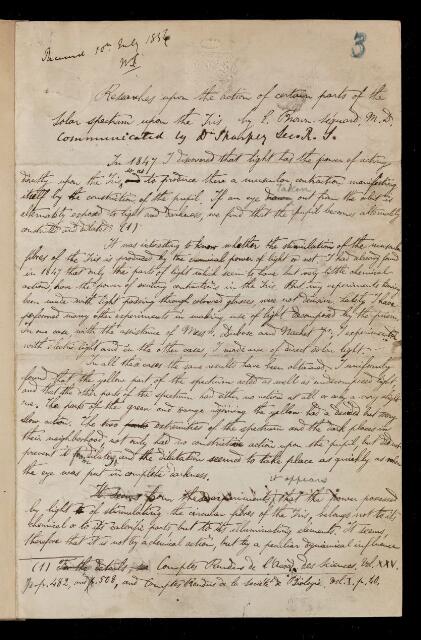 Received 10th July 1856
WS
3
Researches upon the action of certain parts of the
Solar spectrum upon the Iris by E. Brown-Sequard, M.D.
Communicated by Dr Sharpey Sec. R. S.
In 1847 I discovered that light has the power of acting
directly upon the Iris, so as to produce there a muscular contraction manifesting
itself by the constriction of the pupil. If an eye taken out from the orbit is
alternately exposed to light and darkness, we find that the pupil becomes alternately
constricted and dilated. (1)
It was interesting to know whether the stimulation of the muscular
fibres of the Iris is produced by the chemical power of light or not. I had already found
in 1847 that only the parts of light which seem to have but very little chemical
action, have the power of exciting contractions in the Iris. But my experiments having
been made with light passing through coloured glasses were not decisive, lately I have
performed many other experiments in making use of light decomposed by the prism.
In one case with the assistance of Messrs. Dubosc and Nachet Jr., I experimented
with Electric light and in the other cases, I made use of direct solar light.
In all these cases the same results have been obtained. I uniformly
found that the yellow part of the spectrum acted as well as undecomposed light,
and that the other parts of the spectrum had either no action at all or only a very slight
one. The parts of the green and orange joining the yellow had a decided but very
slow action. The two extremities of the spectrum and the dark places in
their neighbourhood, not only had no constrictive action upon the pupil, but did not
prevent it dilating, and the dilatation seemed to take place as quickly as when
the eye was put in complete darkness.
it appears
from the experiments, that the power possessed
by light of stimulating the circular fibres of the Iris, belongs not to its
chemical or to its calorific parts but to its illuminating elements. It seems
therefore that it is not by a chemical action, but by a peculiar dynamical influence
(1) Comptes Rendus de l'Acad. des Sciences, Vol. XXV.
p. 482, and p. 508, and Comptes Rendus de la société de Biologie, vol. I, p. 40.